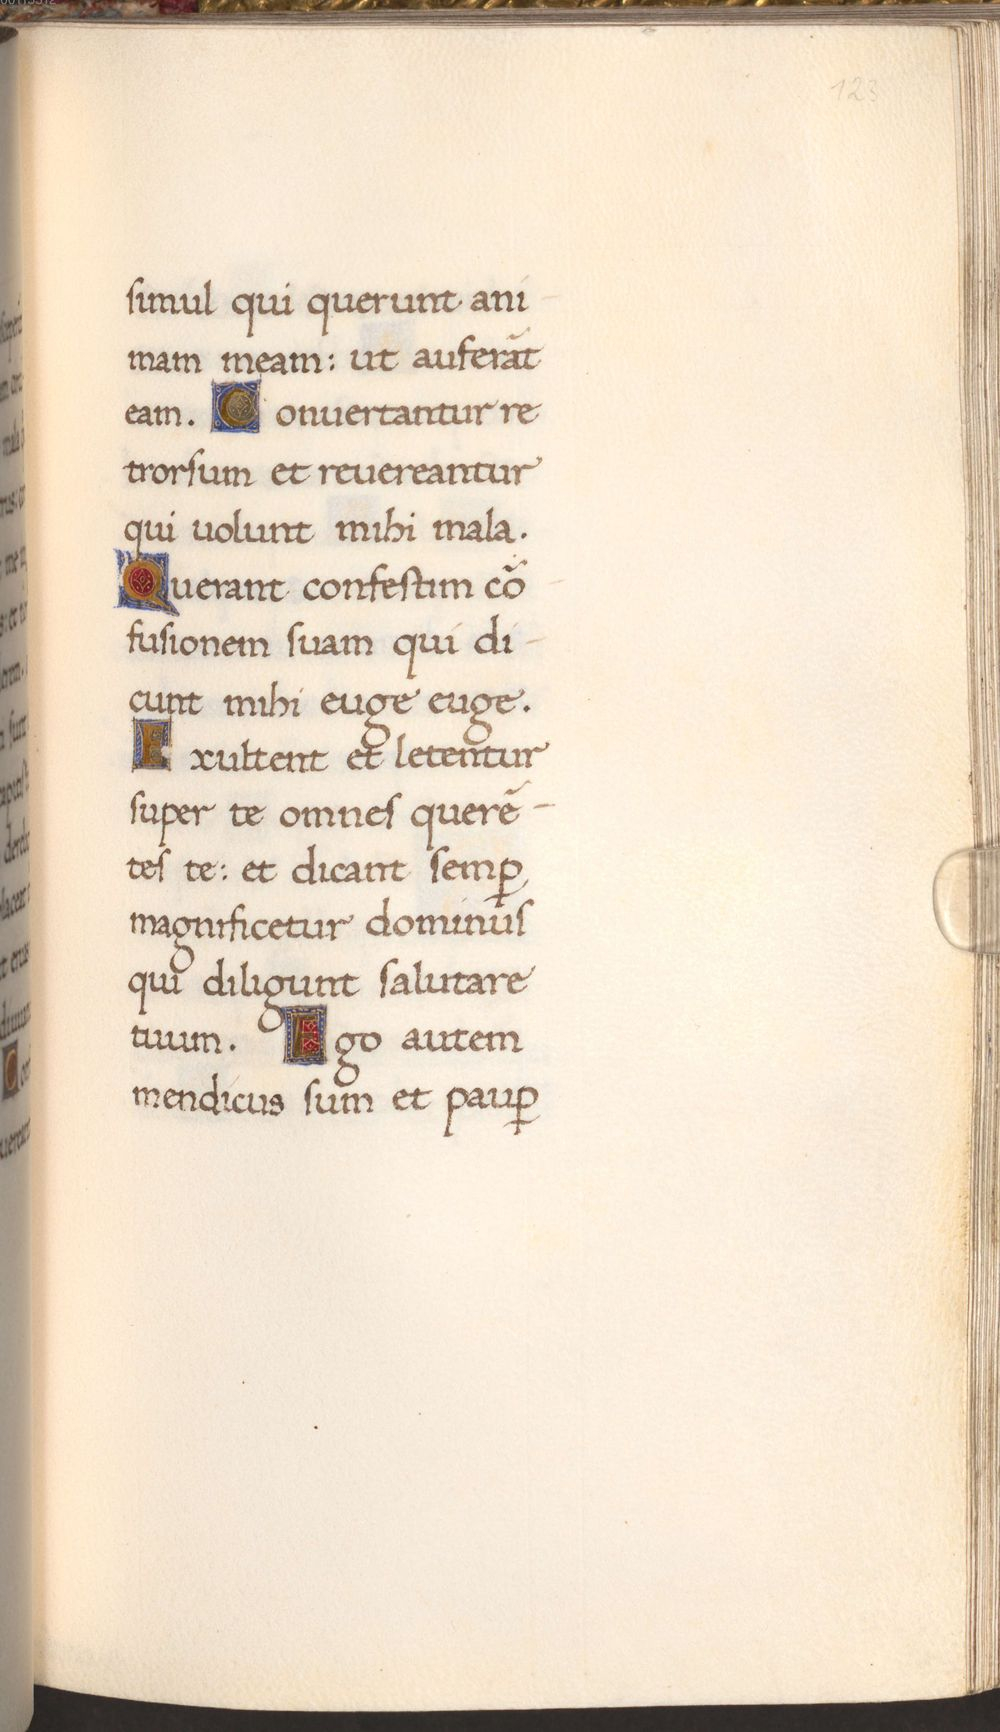 123
simul qui querunt ani-
mam meam: ut auferāt
eam. Conuertantur re
trorsum et reuereantur
qui uolunt mihi mala.
Querant confestim cō-
fusionem suam qui di-
cunt mihi euge euge.
Exultent et letentur
super te omnes querē-
tes te: et dicant semꝑ
magnificetur dominus
qui diligunt salutare
tuum. Ego autem
mendicus sum et pauꝑ